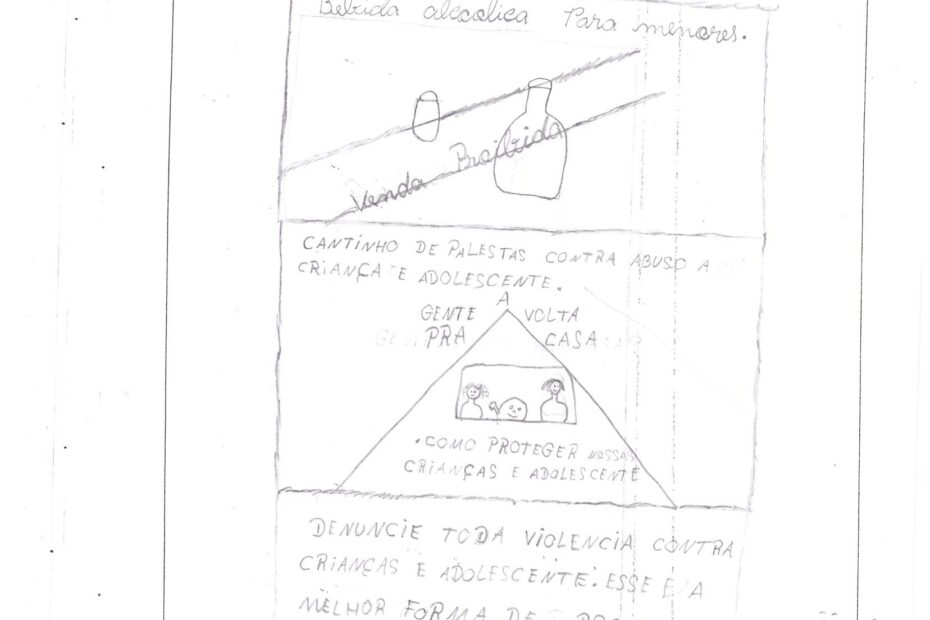 Bebida alcoolica Para menores.
Venda Proibida
CANTINHO DE PALESTAS CONTRA ABUSO A
CRIANÇA E ADOLESCENTE.
A
GENTE VOLTA
PRA CASA
. COMO PROTEGER NOSSAS
CRIANÇAS E ADOLESCENTE
DENUNCIE TODA VIOLENCIA CONTRA
CRIANÇAS E ADOLESCENTE. ESSE E A
MELHOR FORMA DE